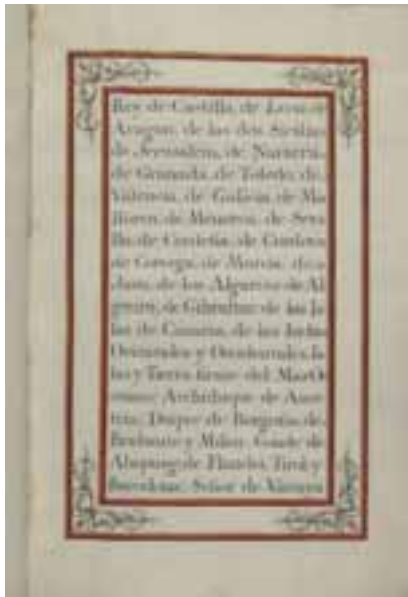 Rey de Castilla, de Leon, de
Aragon, de las dos Sicilias
de Jerusalem, de Navarra,
de Granada, de Toledo, de
Valencia, de Galicia, de Ma
llorca, de Menorca, de Sevi
lla, de Cerdeña, de Cordova
de Corcega, de Murcia, de
Jaen, de los Algarves de Al
gecira, de Gibraltar, de las Is
las de Canaria, de las Indias
Orientales y Occidentales, Is
las y Tierra firme del Mar O
ceano; Archiduque de Aus
tria; Duque de Borgoña, de
Brabante y Milan; Conde de
Abspurg, de Flandes, Tirol y
Barcelona; Señor de Vizcaya